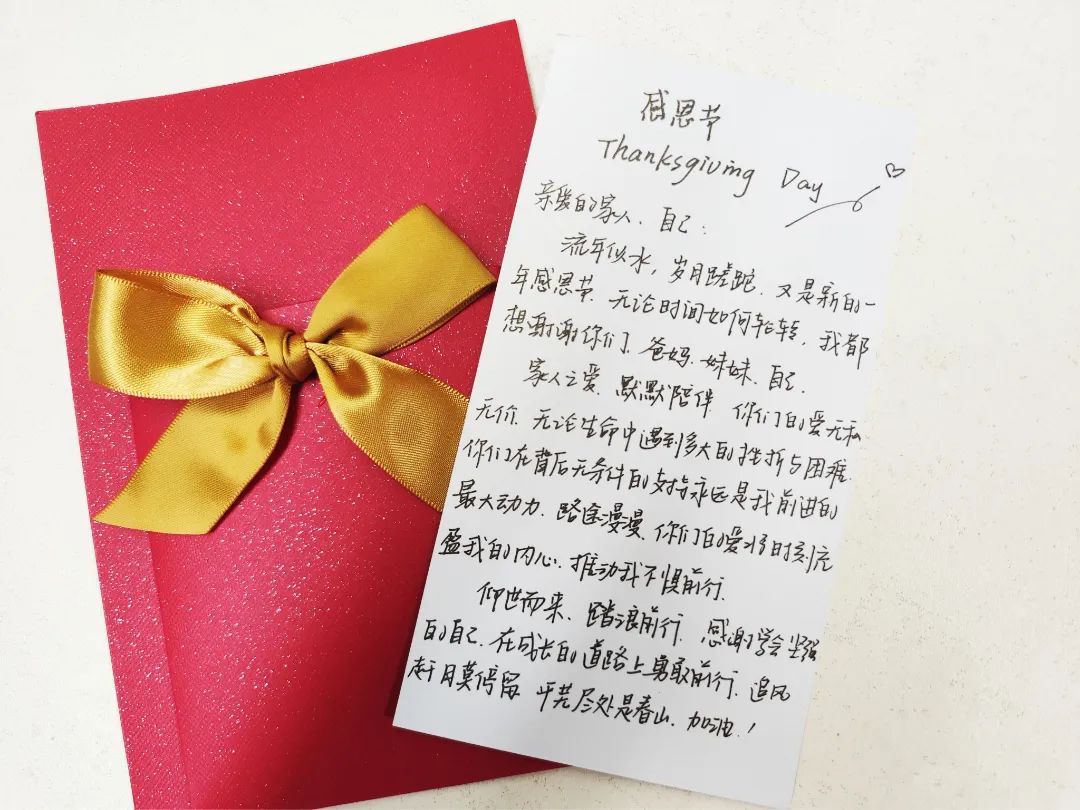 感恩节
Thanksgiving Day
亲爱的家人、自己:
流年似水,岁月蹉跎.又是新的一
年感恩节.无论时间如何轮转,我都
想谢谢你们.爸妈.妹妹、自己.
家人之爱.默默陪伴 你们的爱无私
无价.无论生命中遇到多大的挫折与困难.
你们在背后无条件的支持永远是我前进的
最大动力.路途漫漫.你们的爱将时刻充
盈我的内心.推动我不惧前行.
仰世而来.踏浪前行.感谢学会坚强
的自己.在成长的道路上勇敢前行.追风
赶月莫停留.平芜尽处是春山.加油!